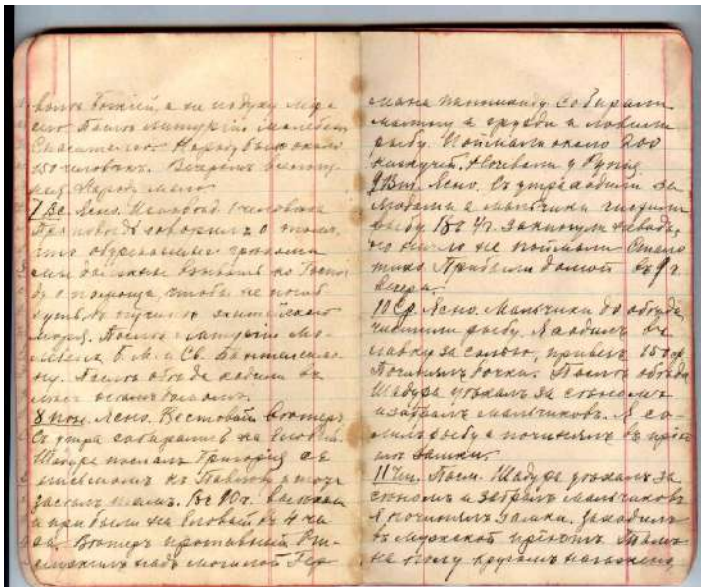 волѣ Божіей, а не по духу мора
его. Послѣ литургіи молебенъ
Спасителю. Народу было около
150 человѣкъ. Вечеромъ
Народу мало.
7 Вс. Ясно. Исповѣд. 1 человѣка
Проповѣдь говорилъ о томъ,
что обуреваемые грѣхами
мы должны взывать ко Госпо-
ду о помощи, чтобы не погиб
нуть въ пучинѣ житейскаго
моря. Послѣ литургіи мо
лебенъ Б. М. и Св. Пантелеимо
ну. Послѣ обѣда ходили въ
лѣсъ
8 Пон. Ясно. Вестовый вѣтеръ
Съ утра собирались на Еловый.
Шадура послалъ Григорія съ
письмомъ къ Павлову а тотъ
засталъ тамъ. Въ 10 ч. выѣхали
и прибыли на Еловый въ 4 ча
са. Вѣтеръ противный. От-
служилъ надъ могилой Гер
мана панихиду. Собирали
малину и грузди и ловили
рыбу. Поймали около 200
Ночевали у
9 Вт. Ясно. Съ утра ходили за
ягодами а мальчики чистили
рыбу. Въ 4 ч. закинули неводъ,
но ничего не поймали. Стало
тихо. Прибыли домой въ 9 ч.
вечера.
10 Ср. Ясно. Мальчики до обѣда
чистили рыбу. Я ходилъ въ
лавку за солью, привезъ 150 ф.
Починялъ бочки. Послѣ обѣда
Шадура уѣхалъ за сѣномъ
и забралъ мальчиковъ. Я со-
лилъ рыбу и починялъ въ прію
тѣ замки.
11 Чт. Пасм. Шадура уѣхалъ за
сѣномъ и забралъ мальчиковъ
Я починялъ замки. Заходилъ
въ Мужской пріютъ. Тамъ
на полу кругомъ